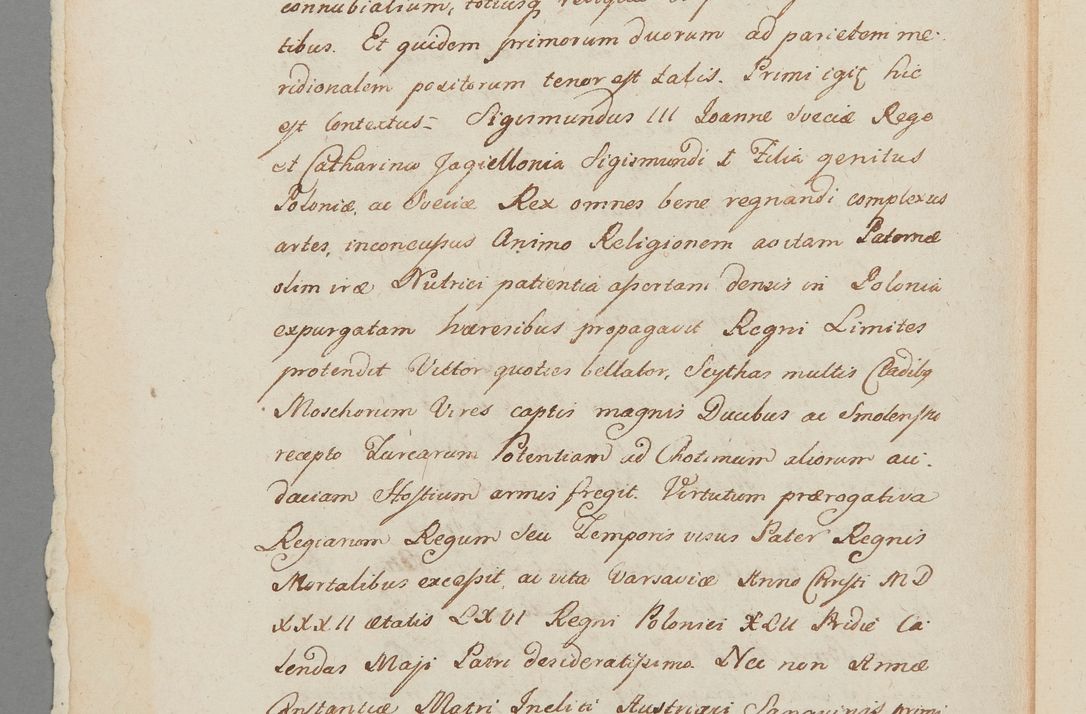 connubialium, totiusq
tibus. Et quidem primorum duorum ad parietem me-
ridionalem positorum tenor est talis. Primi igit hic
est Contextus= Sigismundus III Joannæ Sveciæ Rege
et Catharina Jagiellonia Sigismundi I Filia genitus
Poloniæ, ac Sveciæ Rex omnes bene regnandi complexus
artes, inconcussus Animo Religionem avitam Paternæ
olim iræ Nutrici patientia assertam densis in Polonia
expurgatam hæresibus propagavit Regni Limites
protendit Victor quoties bellator, Scythas multis Cladibq
Moschorum Vires captis magnis Ducibus ac Smolensko
recepto Turcarum Potentiam ad Chotimum aliorum au-
daciam Hostium armis fregit. Virtutum prærogativa
Regiarum Regum seu Temporis visus Pater Regnis
Mortalibus excessit, ac vita Varsaviæ Anno Christi MD
XXXII ætatis LXVI Regni Polonici XLII Pridie Ca-
lendas Maji Patri desideratissimo. Nec non Annæ
Constantiæ Matri Incliti Austriaci Sanguinis primi